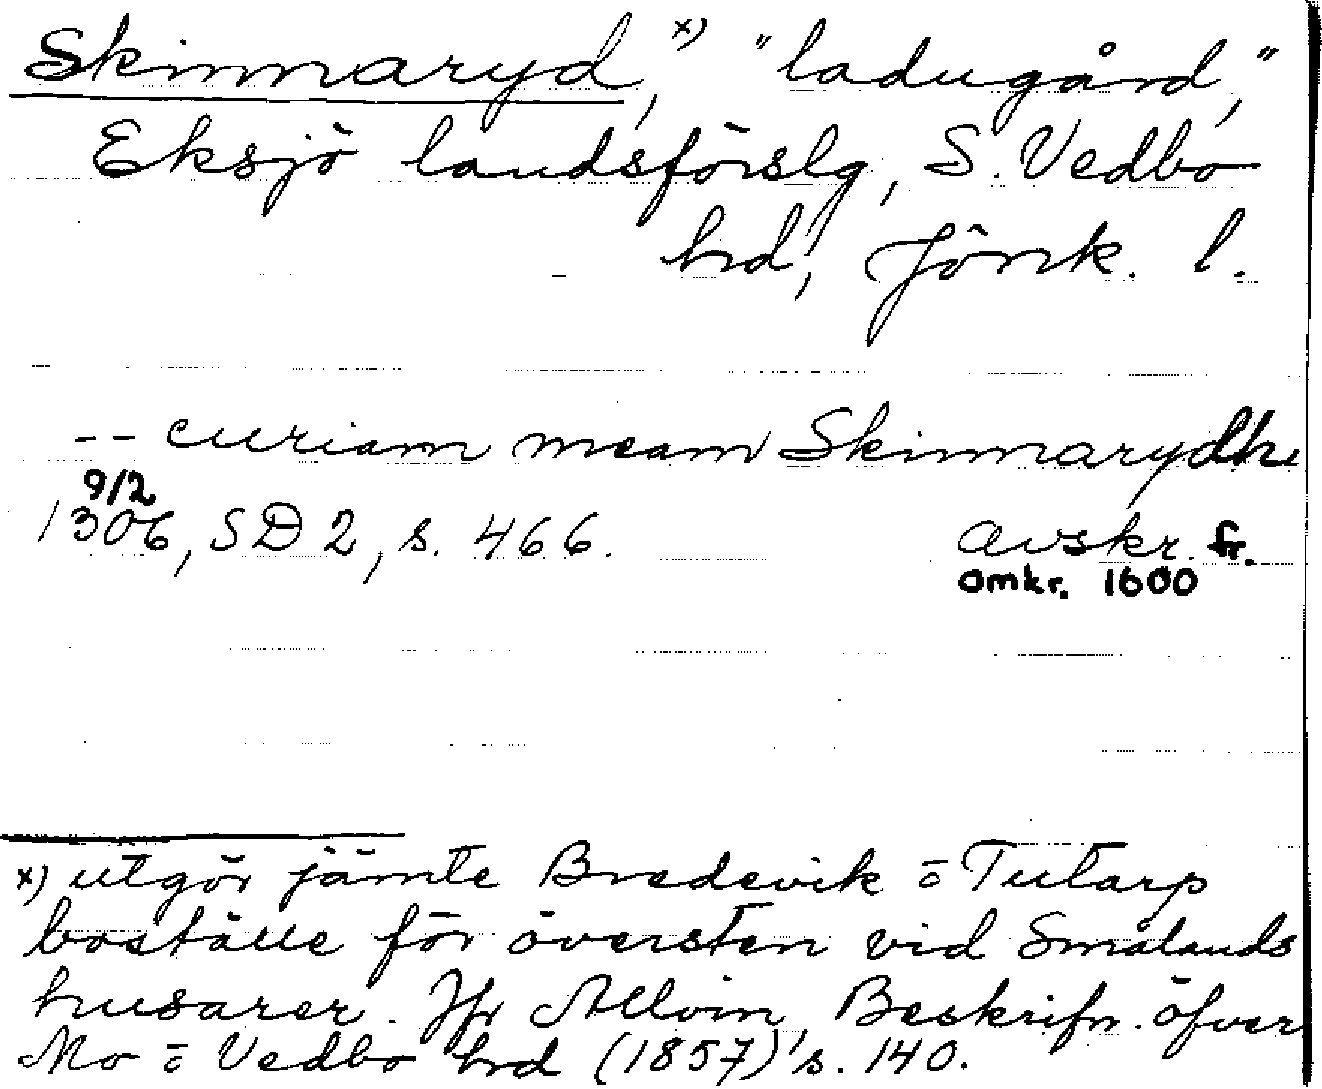 Skinnaryd,ˣ⁾ "ladugård,"
Eksjö landsförslg, S. Vedbo
hrd, Jönk. l.
-- curiam meam Skinnarydhe
9/2
1306, SD 2, s. 466. avskr. fr.
omkr. 1600
x) utgör jämte Bredevik o Tutarp
boställe för översten vid Smålands
husarer. Jfr Allvin, Beskrifn. öfver
Mo o Vedbo hrd (1857) s. 140.